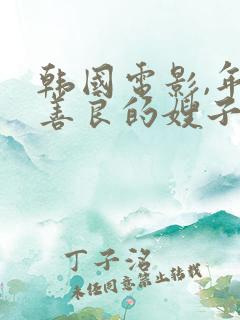 韩国电影,年
善良的嫂子
丁子洺
未经同意禁止转载